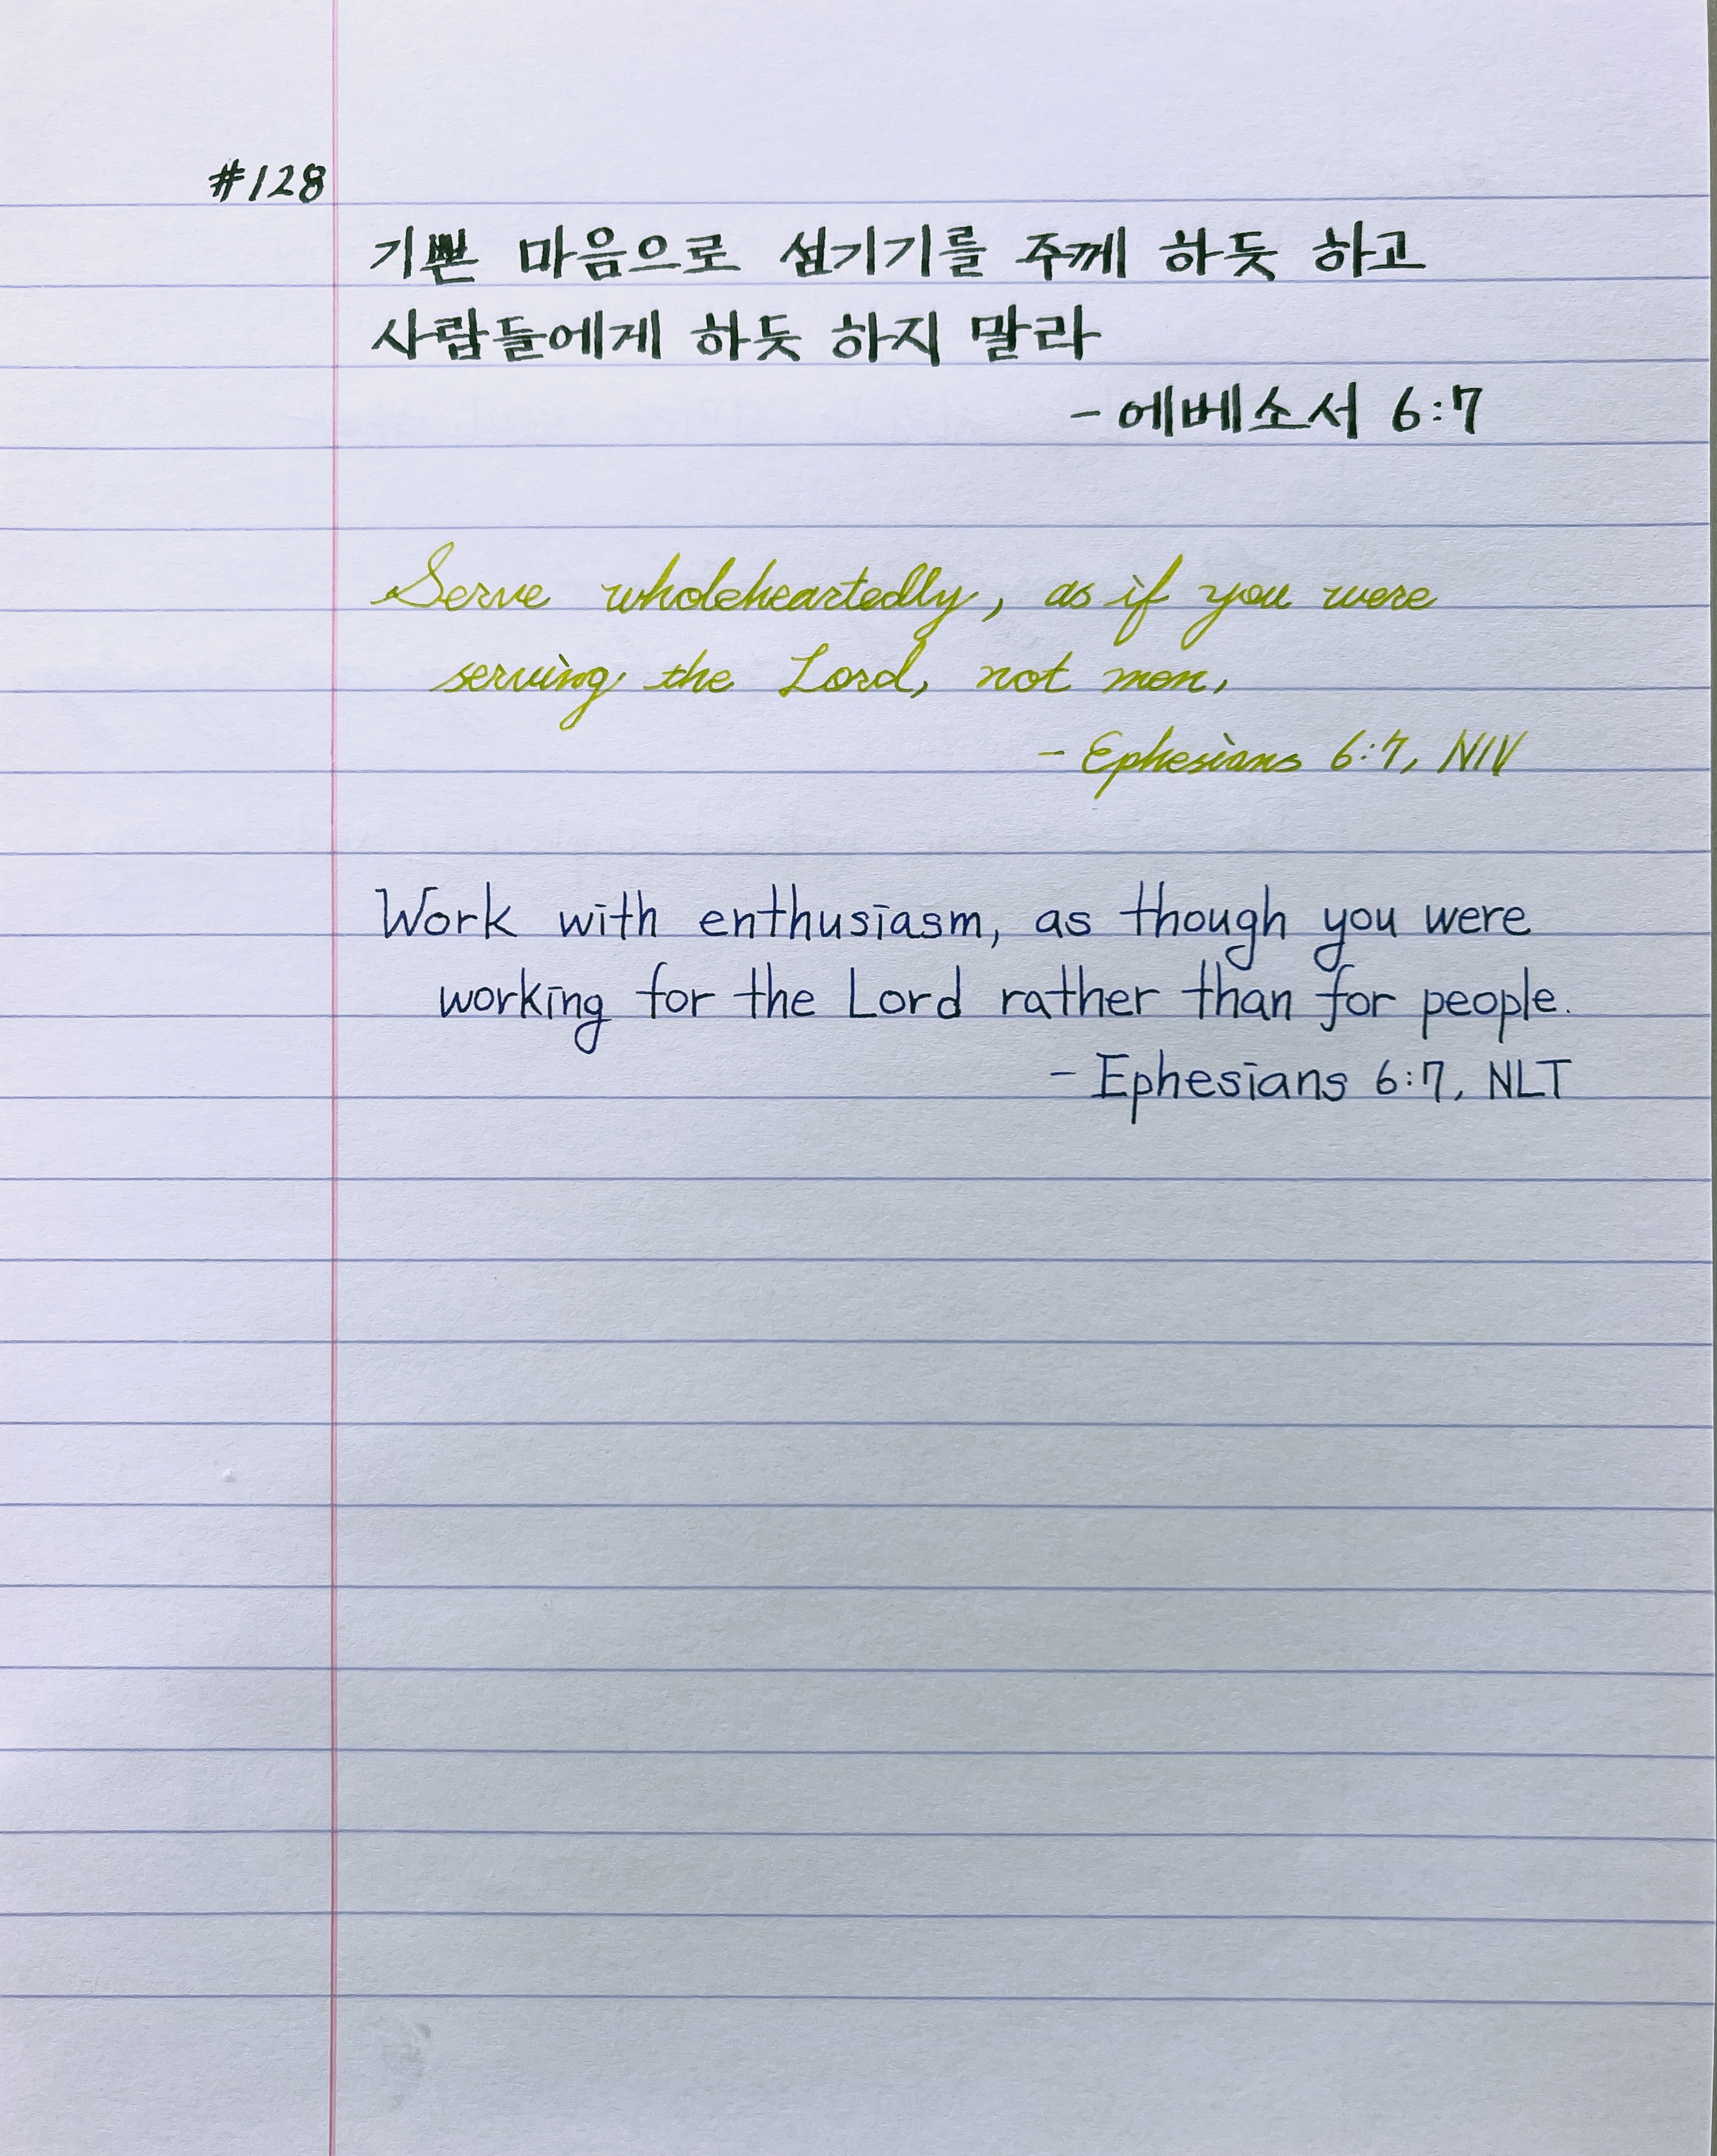 #128
기쁜 마음으로 섬기기를 주께 하듯 하고
사람들에게 하듯 하지 말라
- 에베소서 6:7
Serve wholeheartedly, as if you were
serving the Lord, not men,
- Ephesians 6:7, NIV
Work with enthusiasm, as though you were
working for the Lord rather than for people.
- Ephesians 6:7, NLT